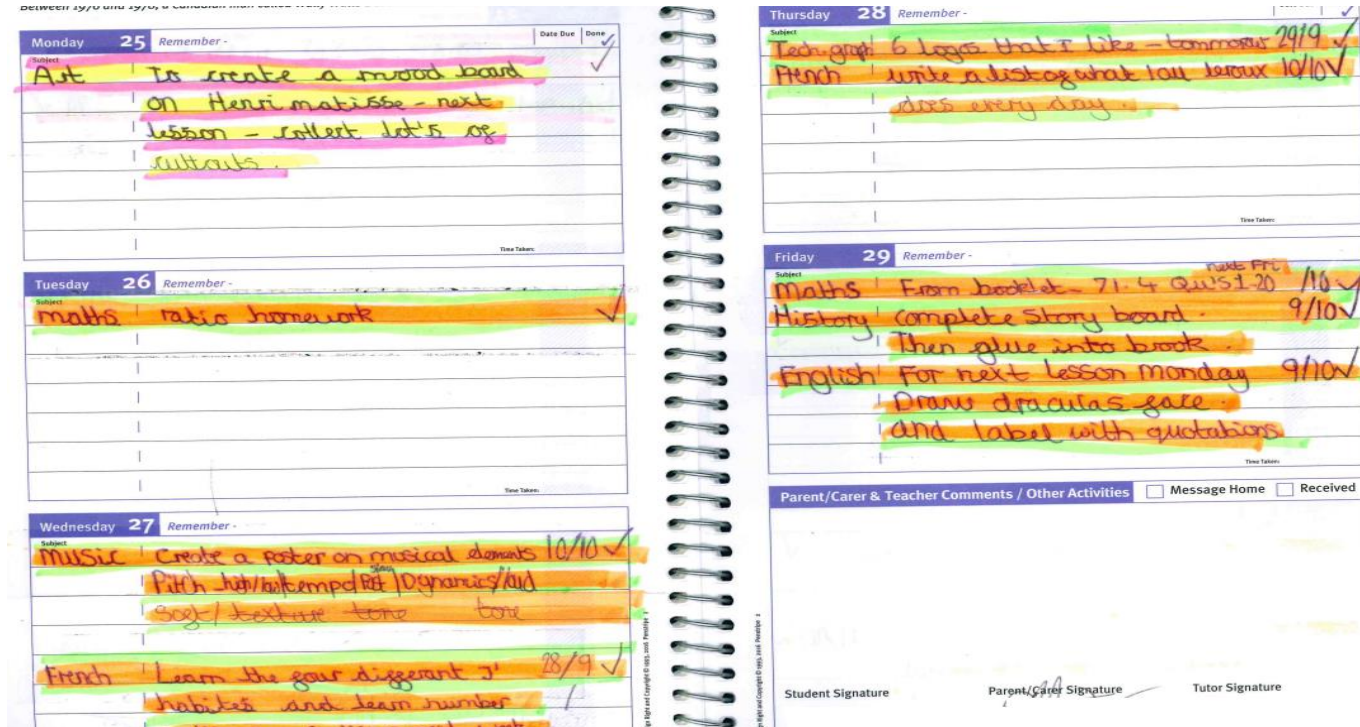 Between 1976 and 1978, a Canadian man called
Monday 25 Remember -
Date Due Done
Subject
Art To create a mood board
on Henri matisse - next
lesson - collect lot's of
cuttouts.
Time Taken:
Tuesday 26 Remember -
Subject
maths ratio homework
Time Taken:
Wednesday 27 Remember -
Subject
MUSIC Create a poster on musical elements 10/10
Pitch - high/low/tempo/ slow /Dynamics/loud
Soft/ texture tone tone
French Learn the four different J' 28/9
habites and learn number
Thursday 28 Remember -
Subject
Tech.graph 6 logos that I like - tommorow 29/9
French write a list of what Lou leroux 10/10
does every day.
Time Taken:
Friday 29 Remember -
next Fri
Subject
Maths From booklet - 71.4 Qu's 1-20 /10
History complete Story board. 9/10
Then glue into book.
English For next lesson monday 9/10
Draw draculas face.
and label with quotations
Time Taken:
Parent/Carer & Teacher Comments / Other Activities Message Home Received
Student Signature Parent/Carer Signature Tutor Signature